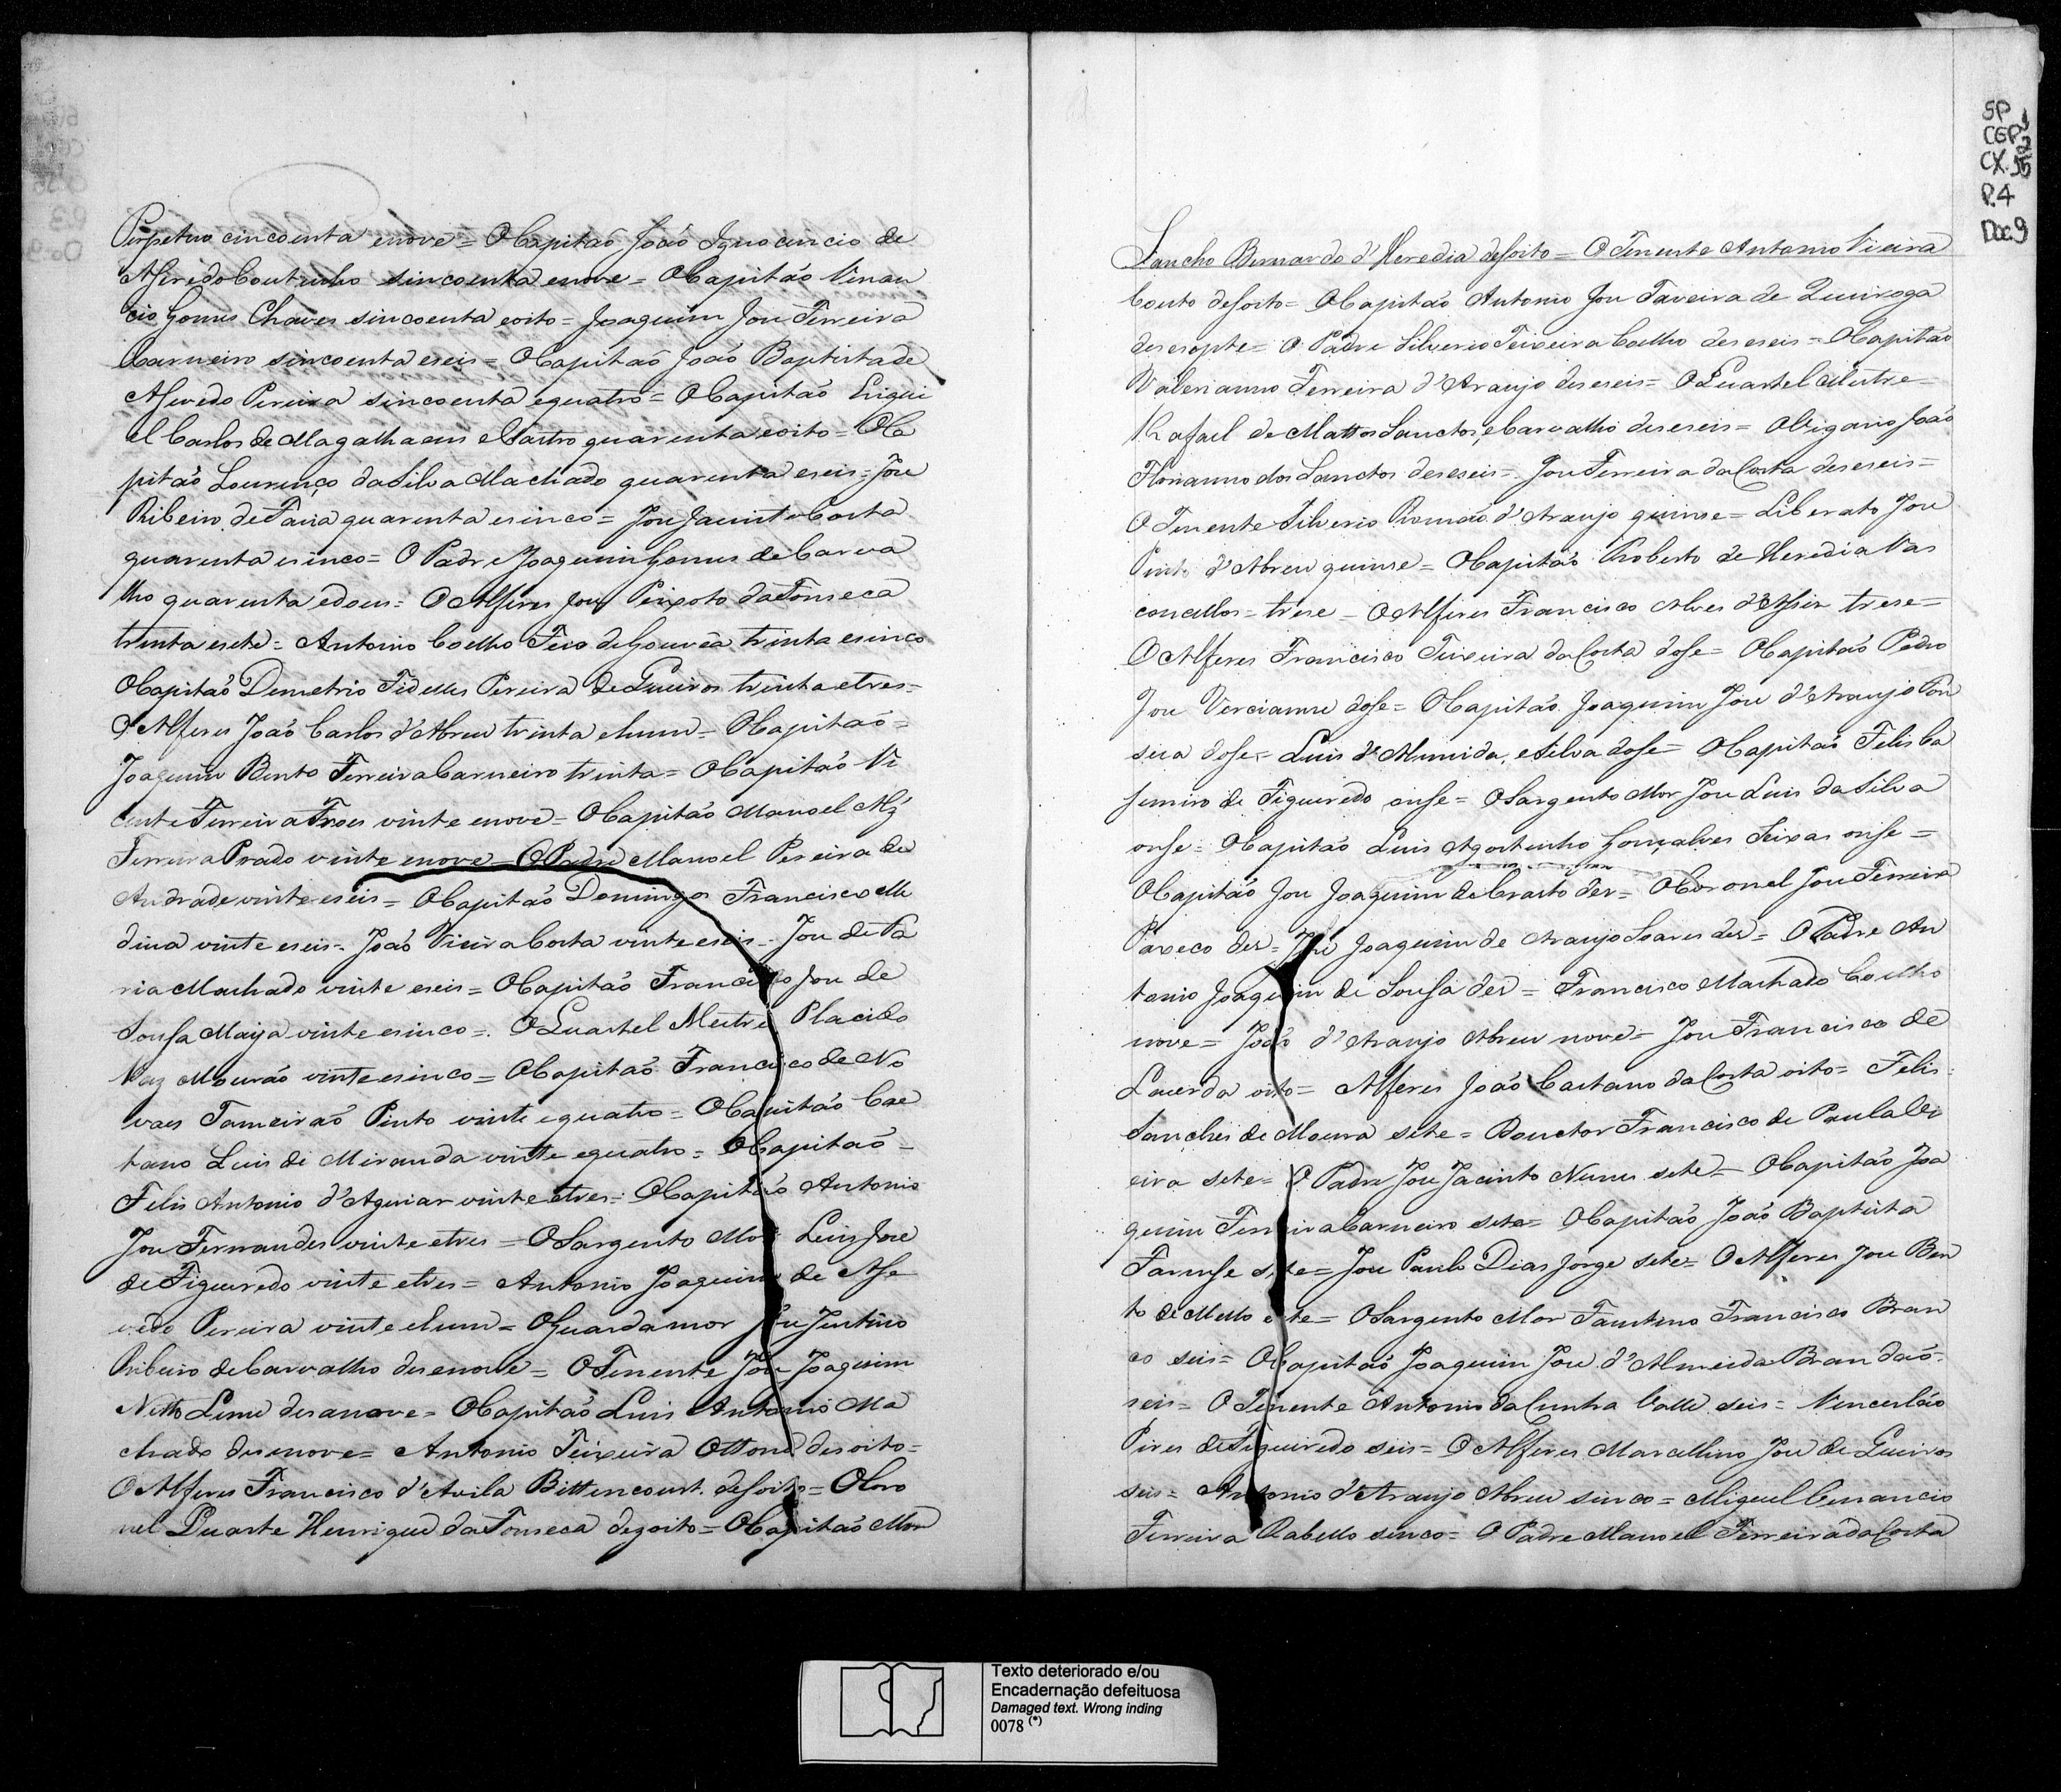 Perpetuo cincoenta enove = OCapitaõ João Ignocencio de
Aseredo Coutinho sincoenta enove = OCapitão Venan
cio Gomes Chaves sincoenta eoito = Joaquim Jose Ferreira
Carneiro sincoenta eseis = OCapitaõ João Baptista de
Asevedo Pereira sincoenta equatro = OCapitão
el Carlos de Magalhaens eCastro quarenta eoito = OCa
pitaõ Lourenço da Silva Machado quarenta eseis = Jose
Ribeiro de Faria quarenta esinco = Jose Jacinto Costa
quarenta esinco = O Padre Joaquim Gomes de Carva
lho quarenta edous = OAlferes Jose Peixoto da Fonseca
trinta esete = Antonio Coelho Feio de Gouvêa trinta esinco
OCapitaõ Demetrio Fidelles Pereira de Queiros trinta etres =
OAlferes João Carlos d'Abreu trinta ehum = OCapitaõ =
Joaquim Bento Ferreira Carneiro trinta = OCapitão Vi
cente Ferreira Froes vinte enove = OCapitão Manoel Alz
Ferreira Prado vinte enove = OPadre Manoel Pereira de
Andrade vinte eseis = OCapitaõ Domingos Francisco Me
dina vinte eseis = João Vieira Costa vinte eseis = Jose de Fa
ria Machado vinte eseis = OCapitaõ Francisco Jose de
Sousa Maya vinte esinco = OQuartel Mestre Placido
Vaz Mourão vinte esinco = OCapitaõ Francisco de No
vaes Tameiraõ Pinto vinte equatro = OCapitão Cae
tano Luis de Miranda vinte equatro = OCapitaõ =
Felis Antonio d'Aguiar vinte etres = OCapitão Antonio
Jose Fernandes vinte etres = OSargento Mor Luis Jose
de Figueredo vinte etres = Antonio Joaquim de Ase
vedo Pereira vinte ehum = OGuardamor Jose Justino
Ribeiro de Carvalho desenove = OTenente Jose Joaquim
Netto Leme desanove = OCapitaõ Luis Antonio Ma
chado desenove = Antonio Teixeira Ottone desoito =
OAlferes Francisco d'Avila Bittencourt desoito = OCoro
nel Duarte Henrique da Fonseca dezoito = OCapitão Mor
SP
CGP
CX.
P.4
Doc.9
Sancho Bernardo d'Heredia desoito = OTenente Antonio Vieira
Couto desoito = OCapitão Antonio Jose Taveira de Quiroga
desesepte = O Padre Silverio Teixeira Coelho deseseis = OCapitão
Valerianno Ferreira d'Araujo deseseis = OQuartel Mestre
Rafael de Mattos Sanctos, eCarvalho deseseis = OVigario João
Florianno dos Sanctos deseseis = Jose Ferreira da Costa deseseis =
O Tenente Silverio Romaõ d'Araujo quinse = Liberato Jose
Pinto d'Abreu quinse = OCapitão Roberto de Heredia Vas
concellos = trese = OAlferes Francisco Alves d'Assis trese =
OAlferes Francisco Teixeira da Costa dose = OCapitão Pedro
Jose Vercianne dose = OCapitão Joaquim Jose d'Araujo Fon
seca dose = Luis d'Almeida, eSilva dose = OCapitaõ Felis Ca
semiro de Figueredo onse = OSargento Mor Jose Luis da Silva
onse = OCapitão Luis Agostinho Gonçalves Seixas onse =
OCapitão Jose Joaquim de Crasto des = OCoronel Jose Ferreira
Paxeco des = Jose Joaquim de Araujo Soares des = OPadre An
tonio Joaquim de Sousa des = Francisco Machado Coelho
nove = João d'Araujo Abreu nove = Jose Francisco de
Lacerda oito = Alferes João Caetano da Costa oito = Felis
Sanches de Moura sete = Douctor Francisco de Paula Vi
eira sete = O Padre Jose Jacinto Nunes sete = OCapitão Joa
quim Ferreira Carneiro sete = OCapitão João Baptista
Farnese sete = Jose Paulo Dias Jorge sete = OAlferes Jose Ben
to de Mello sete = OSargento Mor Faustino Francisco Bran
co seis = OCapitaõ Joaquim Jose d'Almeida Brandaõ =
seis = O Tenente Antonio da Cunha Valle seis = Venceslão
Pires de Figueiredo seis = OAlferes Marcellino Jose de Queiros
seis = Antonio d'Araujo Abreu sinco = Miguel Cenancio
Ferreira Rabello sinco = O Padre Manoel Ferreira da Costa
Texto deteriorado e/ou
Encadernação defeituosa
Damaged text. Wrong inding
0078 (*)